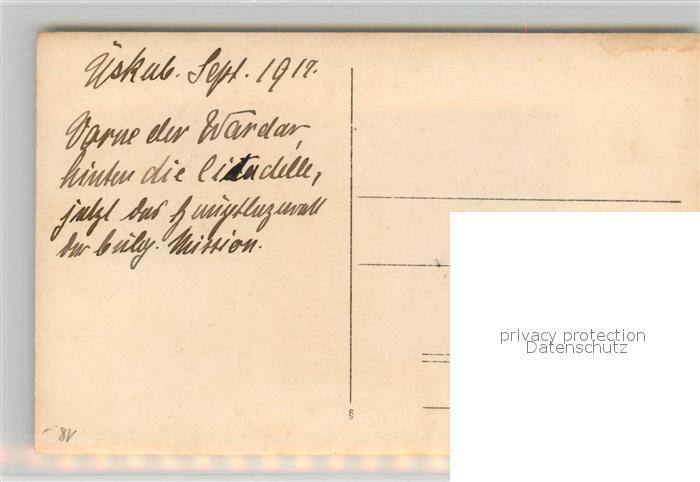 Üsküb. Sept. 1917.
Vorne der Wardar,
hinten die Citadelle,
jetzt das
der bulg. Mission.
§
privacy protection
Datenschutz